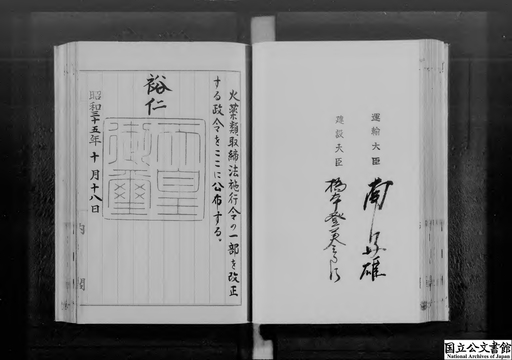 運輸大臣
南好雄
建設大臣
橋本登美三郎
火薬類取締法施行令の一部を改正
する政令をここに公布する。
裕仁
天皇
御璽
昭和三十五年十月十八日
内閣
国立公文書館
National Archives of Japan